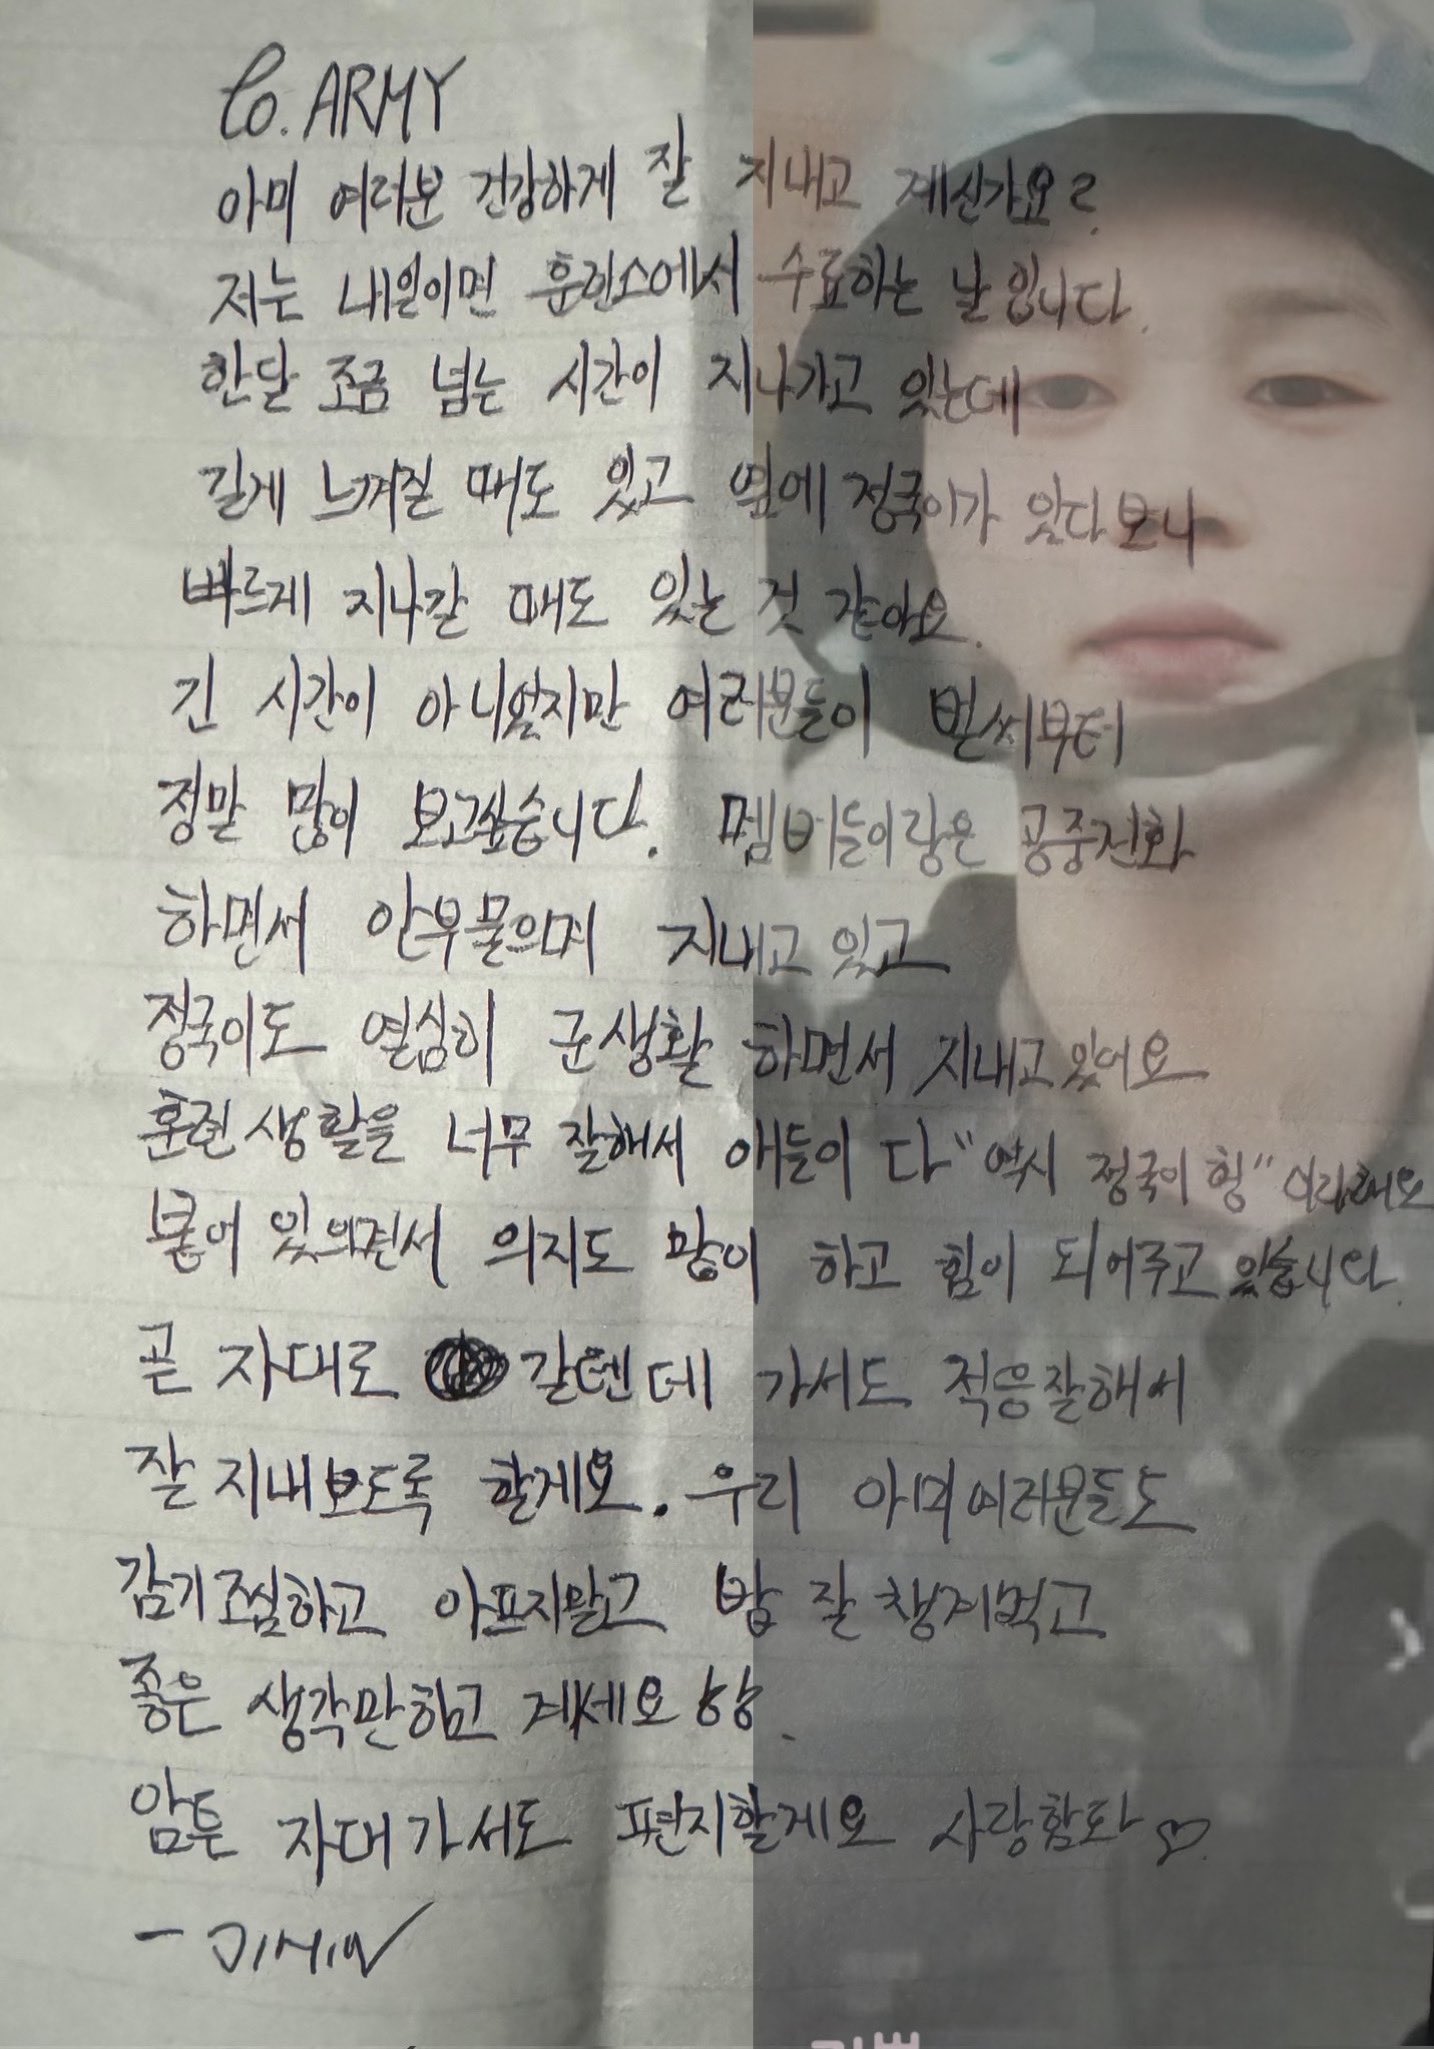 to. ARMY
아미 여러분 건강하게 잘 지내고 계신가요?
저는 내일이면 훈련소에서 수료하는 날 입니다.
한달 조금 넘는 시간이 지나가고 있는데
길게 느껴질 때도 있고 옆에 정국이가 있다보니
빠르게 지나갈 때도 있는 것 같아요.
긴 시간이 아니었지만 여러분들이 벌써부터
정말 많이 보고싶습니다. 멤버들이랑은 공중전화
하면서 안부 물으며 지내고 있고
정국이도 열심히 군생활 하면서 지내고 있어요
훈련 생활을 너무 잘해서 애들이 다 "역시 정국이 형" 이라해요
붙어 있으면서 의지도 많이 하고 힘이 되어주고 있습니다.
곧 자대로 갈텐데 가서도 적응잘해서
잘 지내보도록 할게요. 우리 아미여러분들도
감기조심하고 아프지말고 밥 잘 챙겨먹고
좋은 생각만하고 계세요
암튼 자대가서도 편지할게요 사랑함다 ♡.
- JIMIN